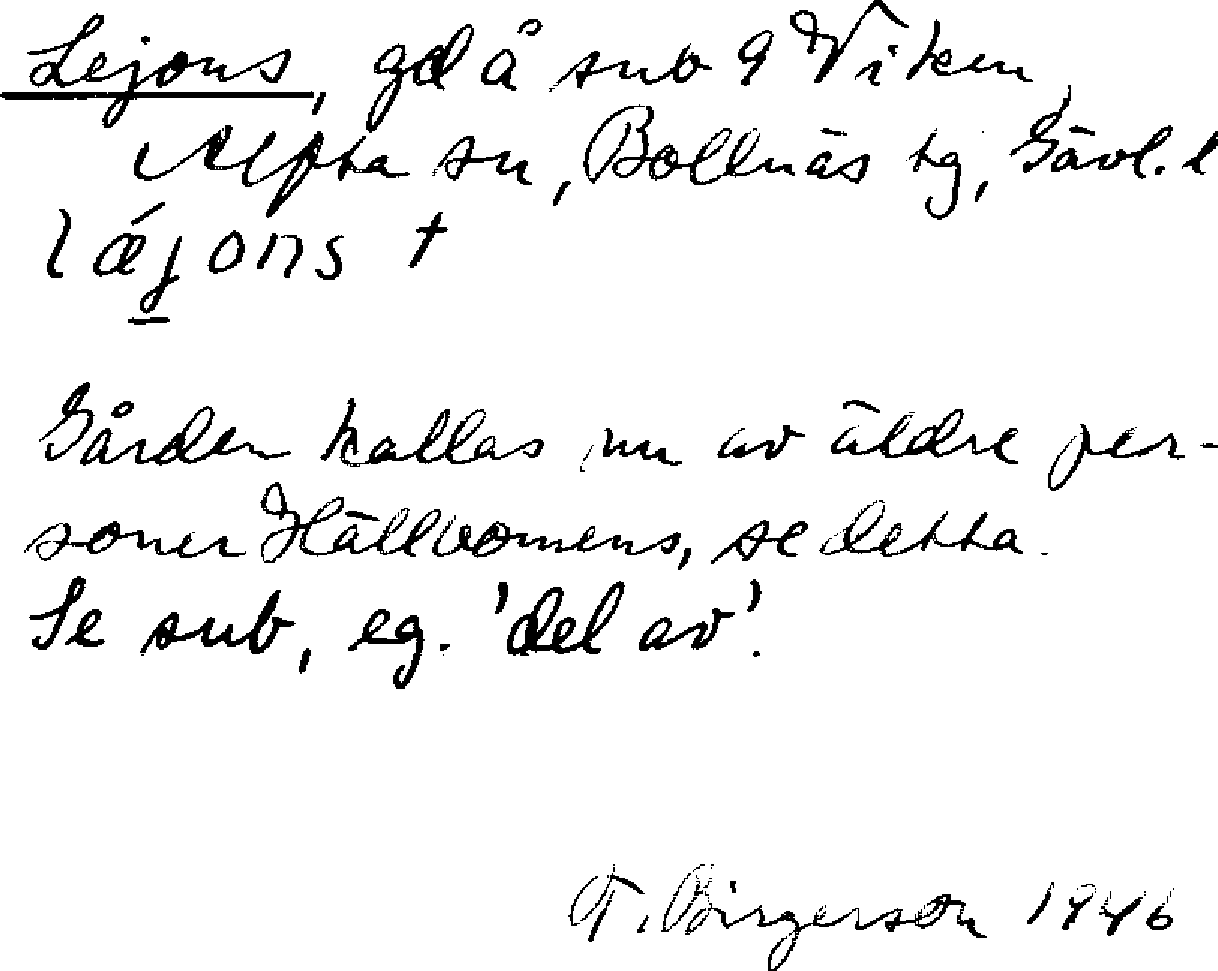 Lejons, gd å sub 9 Viken,
Alfta sn, Bollnäs tg, Gävl. l
lǽjons †
Gården kallas nu av äldre per-
soner Hällbomens, se detta.
Se sub, eg. 'del av'.
T. Birgerson 1946